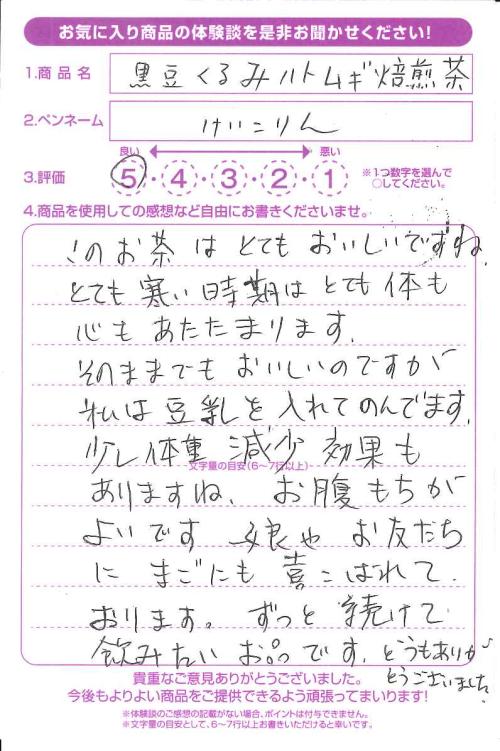 お気に入り商品の体験談を是非お聞かせください!
1.商品名
黒豆くるみハトムギ焙煎茶
2.ペンネーム
けいこりん
良い
悪い
3.評価
5・4・3・2・1
※1つ数字を選んで
○してください。
4.商品を使用しての感想など自由にお書きくださいませ。
このお茶はとてもおいしいですね。
とても寒い時期はとても体も
心もあたたまります。
そのままでもおいしいのですが
私は豆乳を入れてのんでます。
少し体重減少効果も
文字量の目安(6〜7行以上)
ありますね、お腹もちが
よいです 娘やお友だち
にまごにも喜こばれて
おります。ずっと続けて
飲みたいお品です。どうもありが
とうございました。
貴重なご意見ありがとうございました。
今後もよりよい商品をご提供できるよう頑張ってまいります!
※体験談のご感想の記載がない場合、ポイントは付与できません。
※文字量の目安として、6〜7行以上お書きいただけると幸いです。